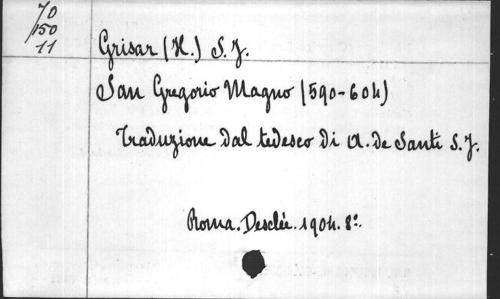 70
150
11
Grisar (H.) S. J.
San Gregorio Magno (590-604)
Traduzione dal tedesco di A. de Santi S. J.
Roma. Desclée. 1904. 8°.